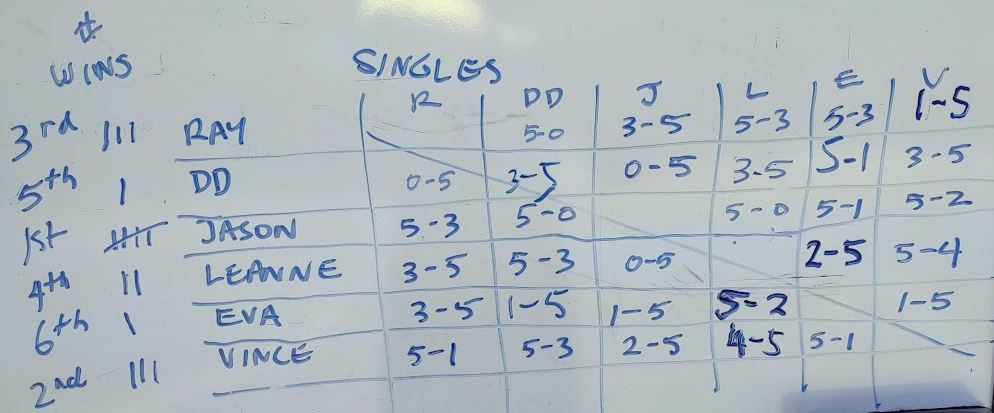 #
WINS
SINGLES
R DD J L E V
3rd III RAY 5-0 3-5 5-3 5-3 1-5
5th I DD 0-5 3-5 0-5 3-5 5-1 3-5
1st IIII JASON 5-3 5-0 5-0 5-1 5-2
4th II LEANNE 3-5 5-3 0-5 2-5 5-4
6th I EVA 3-5 1-5 1-5 5-2 1-5
2nd III VINCE 5-1 5-3 2-5 4-5 5-1